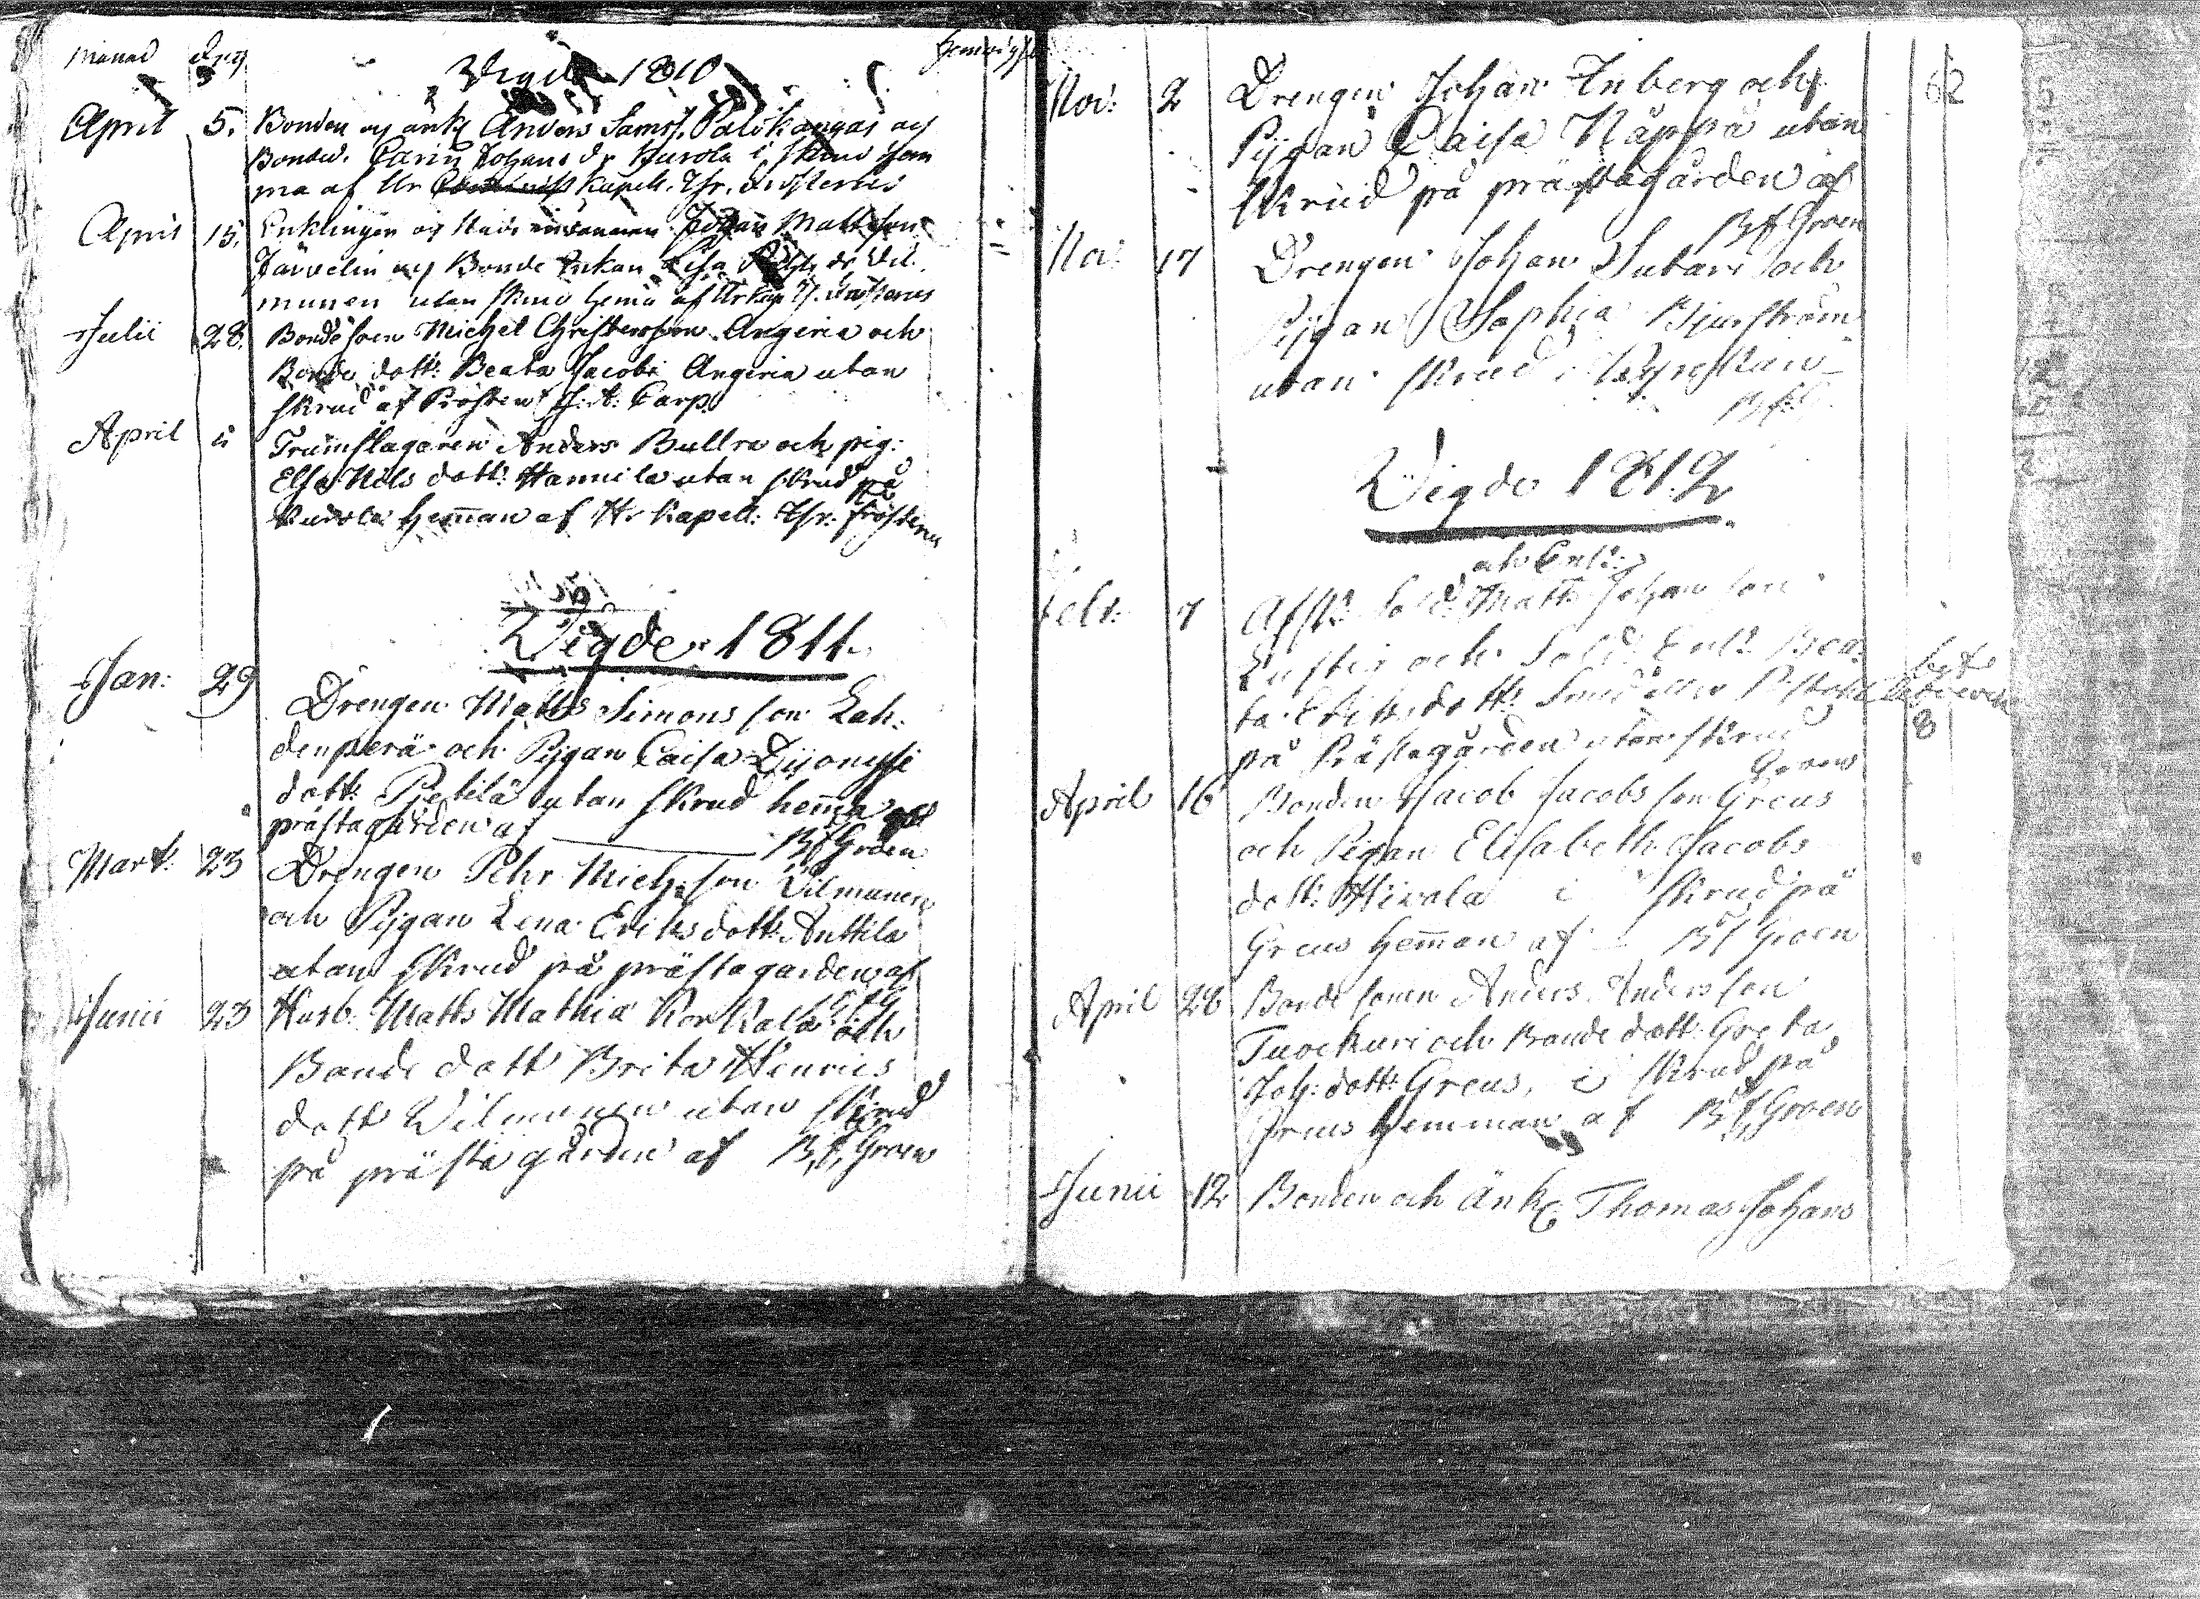 månad dag Vigde 1810
April 5. Bonden og änkl Anders Sams. Palokangas og
Bonded. Carin Johans dr Kurola i skrud hem
ma af Hr Kapell. Thr. Frosterus
April 15. Enklingen og Johan Mattsson
Järvelin og Bonde Enkan Lisa dr Vil
munen utan skrud hema af Hr Kap. Th. Frosterus
Julii 28. Bondesonen Michel Christersson Angeria och
Bonde dott: Beata Jacobs Angeria utan
skrud af Prosten J: A: Carp
April Trumslagaren Anders Bullra och pig:
Elsa Nils dott: Hannila utan skrud på
Kurola hem̄an af Hr Kapell: Thr: Frosterus
Vigde 1811.
Jan: 29 Drengen Matts Simons son Lah-
denperä och Pigan Caisa Dijonysse
dott: Pietilä utan skrud hem̄a
prästagården af B: f: Groen
Mart: 23 Drengen Pehr Mich: son Vilmunen
och Pigan Lena Eriks dott: Anttila
utan skrud på prästagården af
B: f: G
Junii 23 Husb: Matts Mathiæ Korkala och
Bonde dott Brita Henrics
dott Vilmunen utan skrud
på prästagården af B: f: Groen
Nov: 2 Drengen Johan Enberg och
Pigan Caisa Näppä utan
skrud på prästagården af
B: f: Groen
Nov: 17 Drengen Johan Sutari och
Pigan Sophia Bjurström
utan skrud i Kyrckan
B: f: G.
62
Vigde 1812
och Enkl:
Febr: 7 Afsk: Sold: Matts Johan son
Lustig och Sold: Enk: Bea-
ta Eriks dott:
på Prästagården utan skrud
8
Groen
April 16 Bonden Jacob Jacobs son Greus
och Pigan Elisabeth Jacobs
dott: Hivala i skrud på
Greus hem̄an af B: f: Groen
April 28 Bonde sonen Anders Anders son
Tuockuri och Bonde dott: Greta
Joh: dott: Greus, i skrud på
Greus hemman af B: f: Groen
Junii 12 Bonden och änkl Thomas Johans